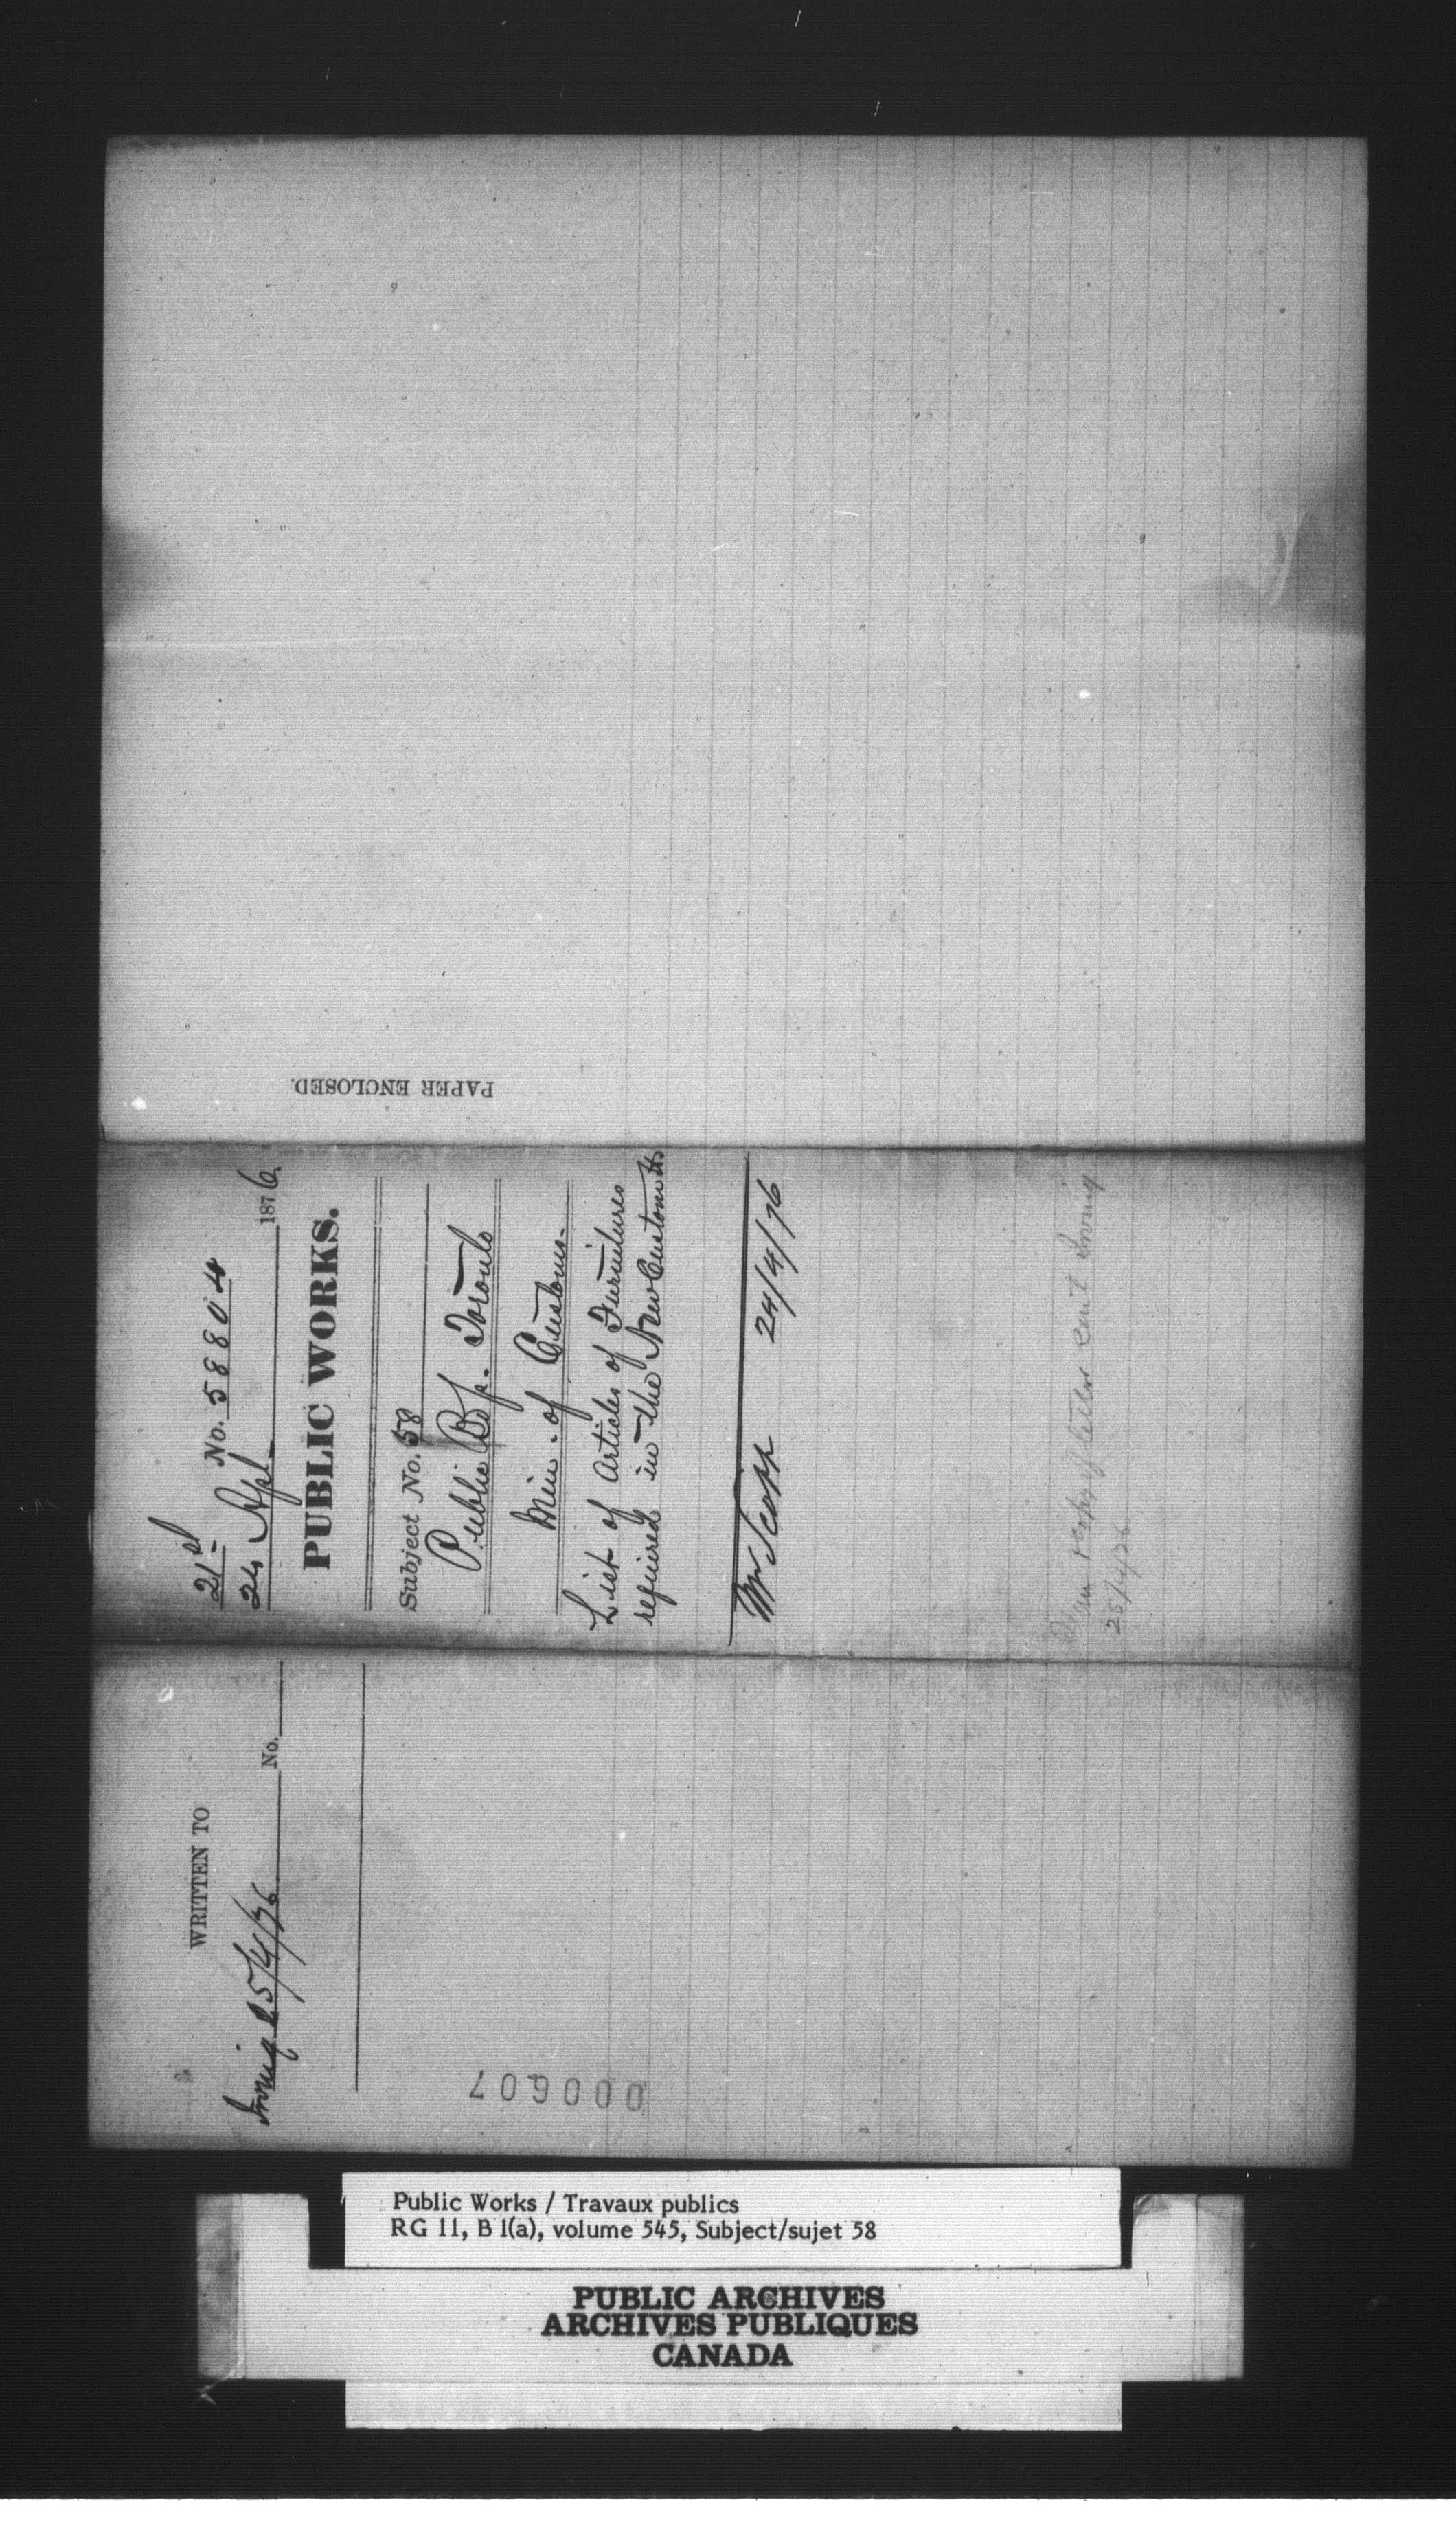 PAPER ENCLOSED.
21st No. 58804
24 Apl 1876.
PUBLIC WORKS.
Subject No. 58
Public Bgs. Toronto
Min. of Customs.
List of Articles of Furnitures
required in the New Custom Hs
Mr Scott 24/4/76
copy of letter sent Irving
25/4/76
WRITTEN TO
Irving 25/4/76 No.
000607
Public Works / Travaux publics
RG 11, B 1(a), volume 545, Subject/sujet 58
PUBLIC ARCHIVES
ARCHIVES PUBLIQUES
CANADA